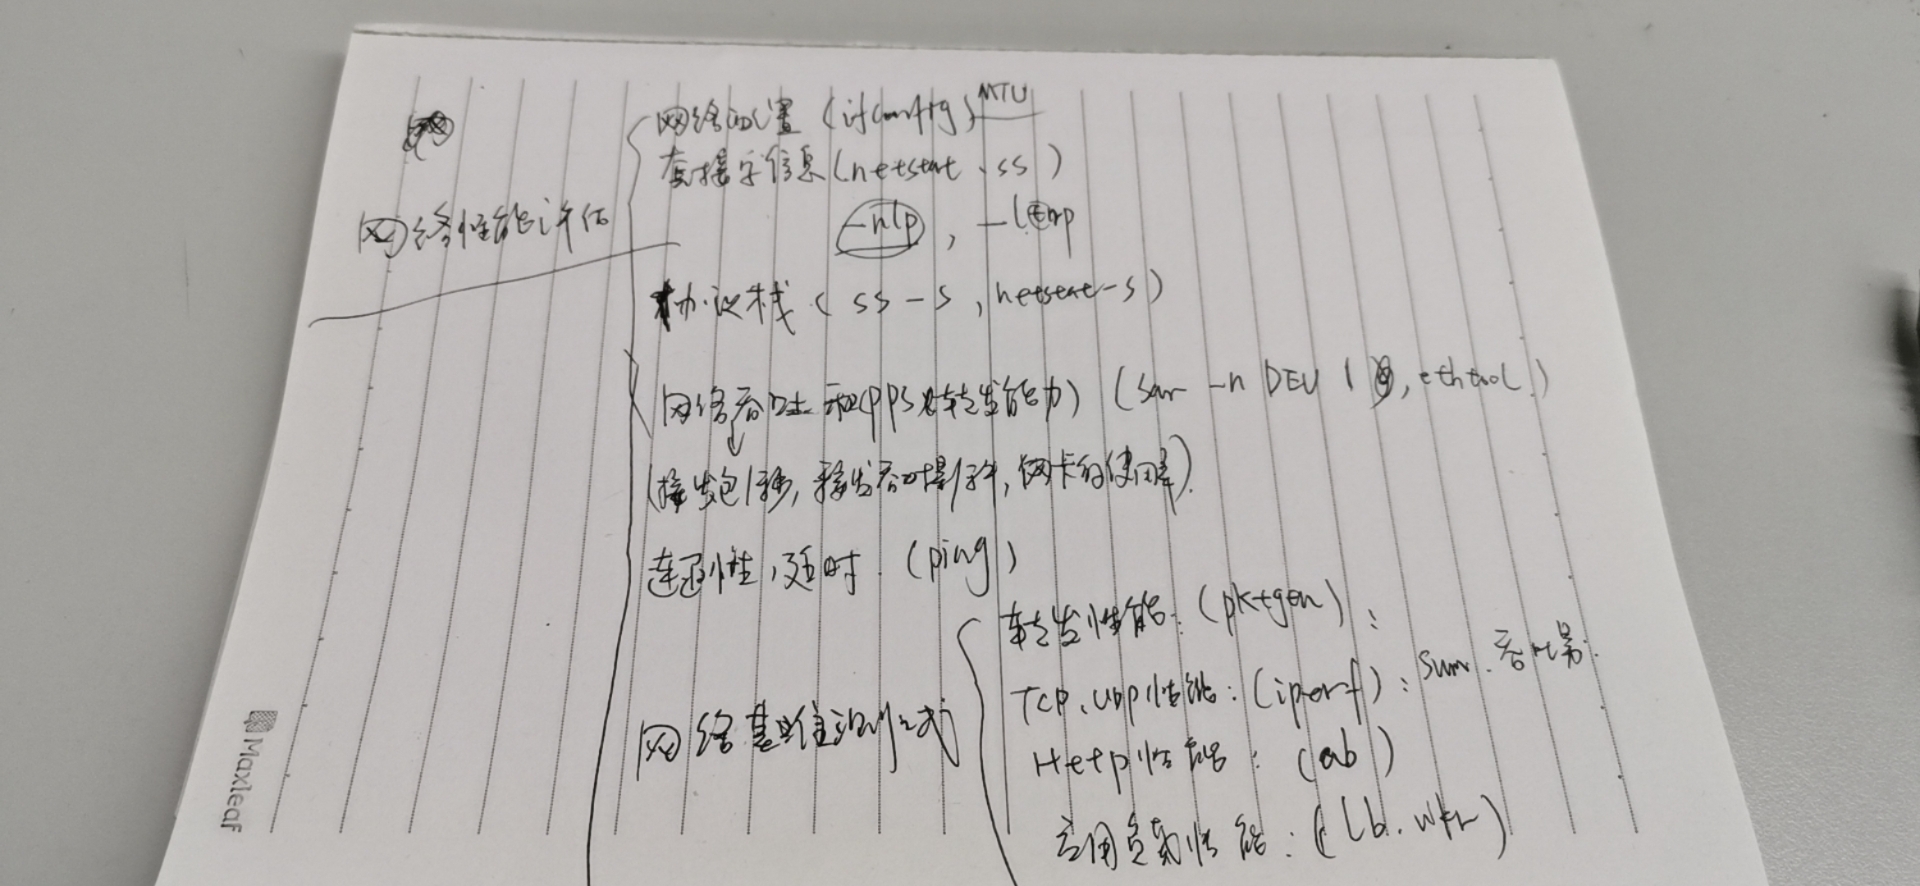 网络配置 (ifconfig) MTU
套接字信息 (netstat、ss)
网络性能评估
-nlp, -ltnp
协议栈 ( ss -s , netstat -s )
网络吞吐和(PPS 转发能力) (sar -n DEV 1 , ethtool )
(接发包/秒, 接发吞吐量/秒, 网卡的使用率).
连通性, 延时. (ping)
网络基准测试
转发性能: (pktgen) :
TCP、UDP性能: (iperf) : sum. 吞吐量.
Http性能 : (ab)
应用负载性能 : (
Maxleaf